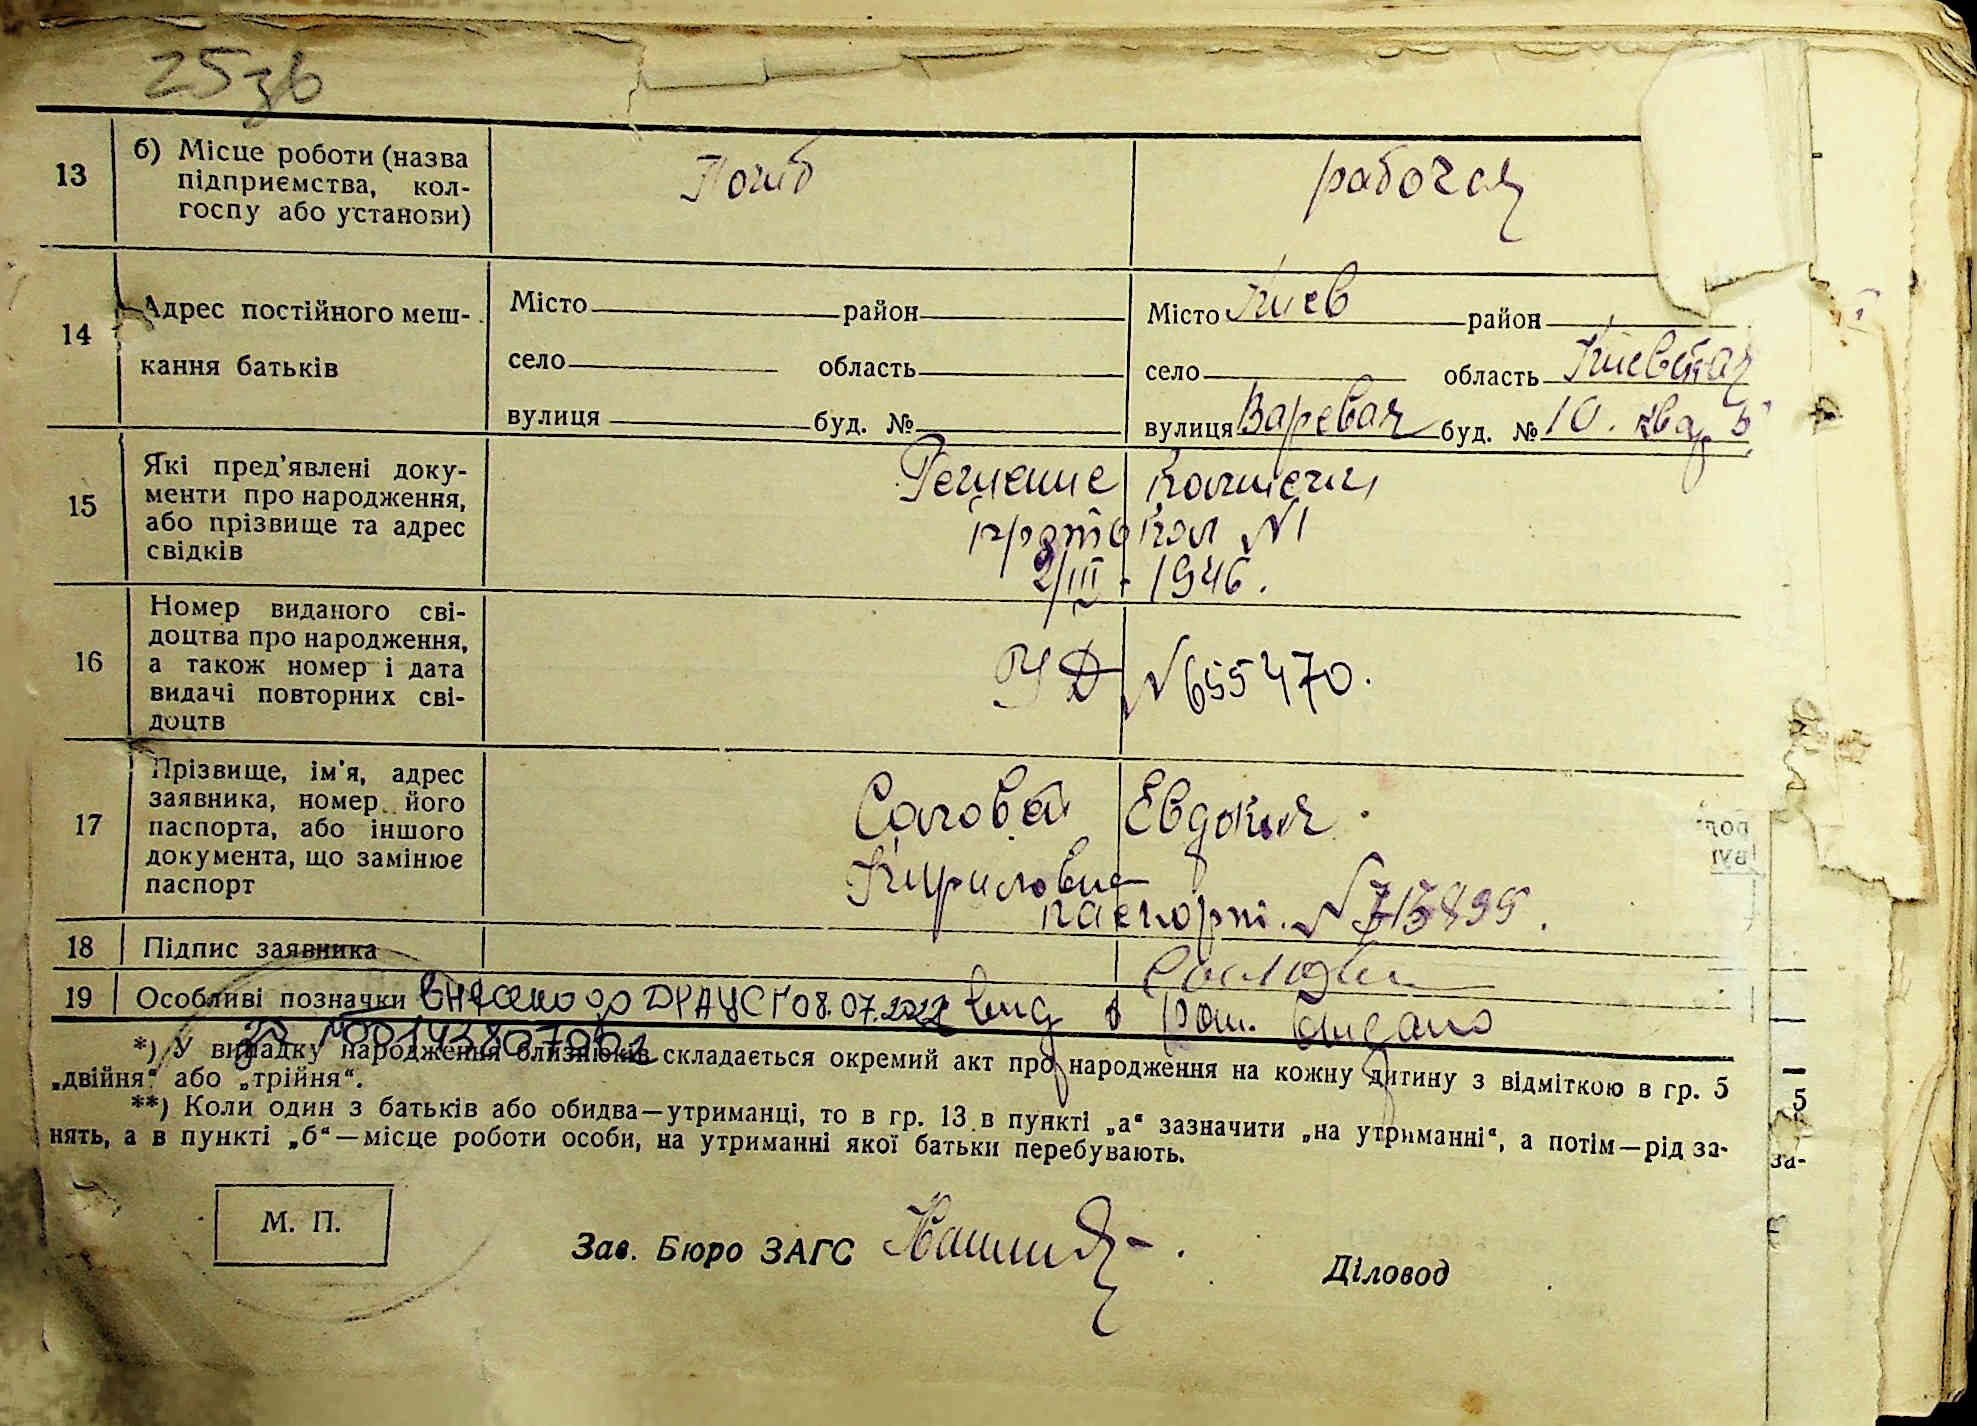 25зв
13 б) Місце роботи (назва підприємства, кол-госпу або установи) Погиб рабочая
14 Адрес постійного меш-кання батьків
Місто район Місто Киев район
село область село область Киевская
вулиця буд. № вулиця буд. № 10. кв
15 Які пред'явлені доку-
менти про народження,
або прізвище та адрес
свідків
Решение
протокол №1
2/III - 1946.
16 Номер виданого сві-
доцтва про народження,
а також номер і дата
видачі повторних сві-
доцтв
УД №655470.
17 Прізвище, ім'я, адрес
заявника, номер його
паспорта, або іншого
документа, що замінює
паспорт
Евдокия
Кириловна
паспорт. №
18 Підпис заявника
19 Особливі позначки внесено до ДРАЦСГ 08.07.2022
за №00143807062
*) У випадку народження близнюків складається окремий акт про народження на кожну дитину з відміткою в гр. 5
„двійня“ або „трійня“.
**) Коли один з батьків або обидва—утриманці, то в гр. 13 в пункті „а“ зазначити „на утриманні“, а потім—рід за-
нять, а в пункті „б“—місце роботи особи, на утриманні якої батьки перебувають.
М. П.
Зав. Бюро ЗАГС
Діловод
5
за-